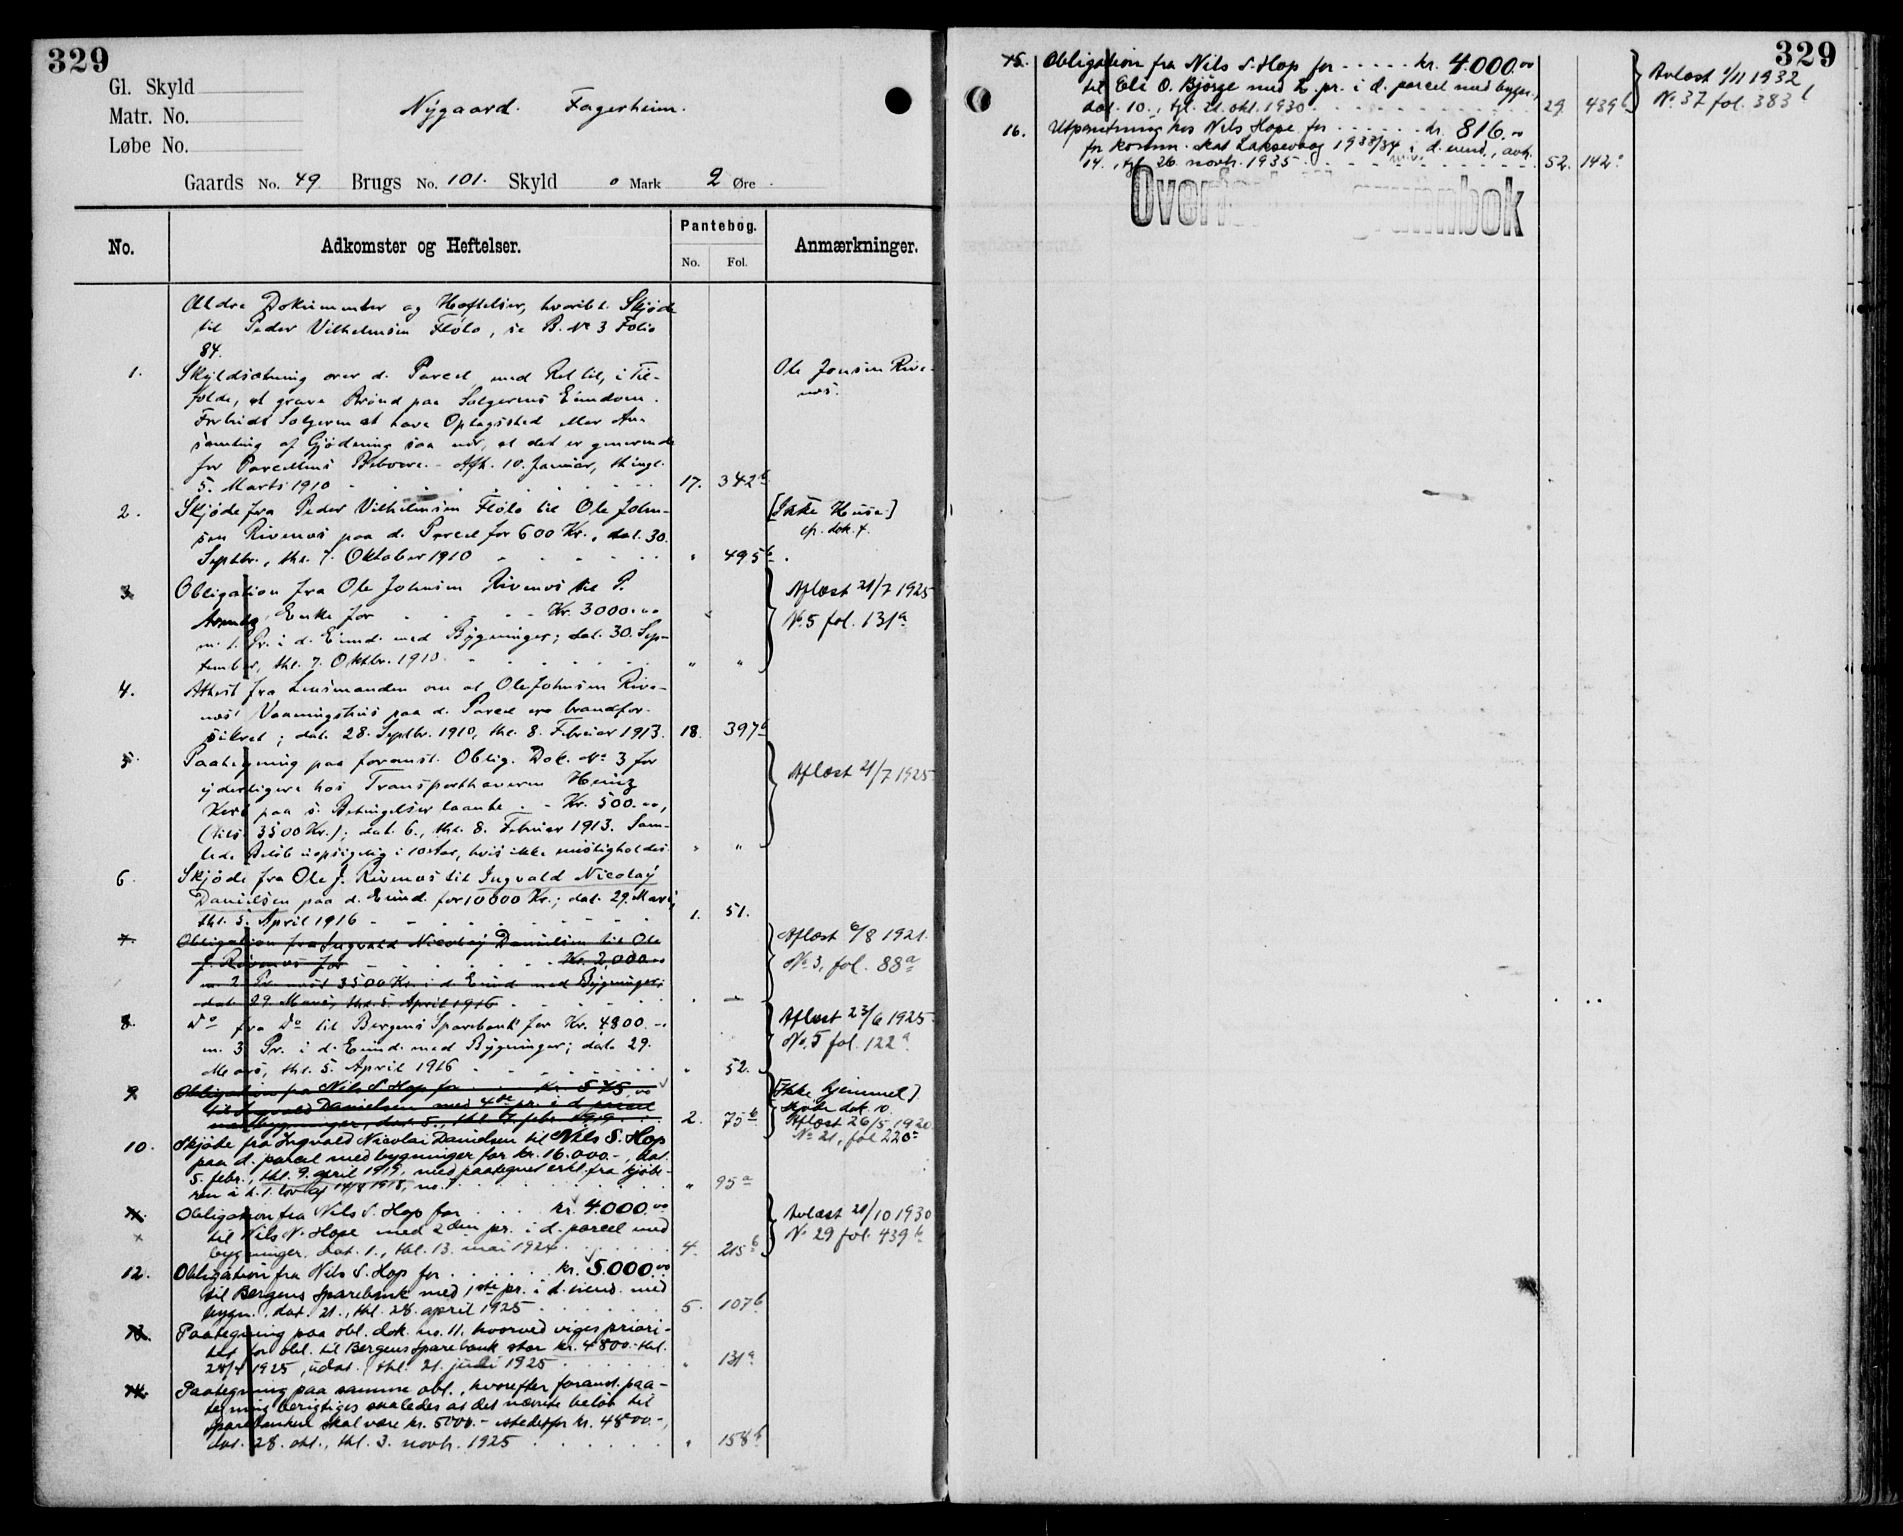 329
Gl. Skyld
Matr. No.
Løbe No.
Nygaard. Fagerheim.
Gaards No. 49 Brugs No. 101. Skyld 0 Mark 2 Øre.
No. Adkomster og Heftelser. Pantebog. No. Fol. Anmærkninger.
Ældre Dokumenter og Hæftelser, hvoribl. Skjøde
til Peder Vilhelmsen Flølo, se B. No 3 Folio
84.
1. Skyldsætning over d. Parcel med Ret til, i Til-
fælde, at grave Brønd paa Sælgerens Eiendom.
Forbudt Sælgeren at have Oplagssted eller An-
samling af Gjødning saa nær, at det er generende
for Parcellens Beboere. - Afh. 10. Januar, thingl.
5. Marts 1910 17. 342b
Ole Jonsen Rive-
nes.
2. Skjøde fra Peder Vilhelmsen Flølo til Ole John-
sen Rivenes paa d. Parcel for 600 Kr., dat. 30.
Septbr., thl. 7. Oktober 1910 " 495b
[Ikke Huse]
cfr. dok. 4.
3. Obligation fra Ole Johnsen Rivenes til P.
Enke for Kr. 3000.00
m. 1. Pr. i d. Eiend. med Bygninger; dat. 30. Sep-
tember, thl. 7. Oktbr. 1910. " "
Aflæst 21/7 1925
No. 5 fol. 131a
4. Attest fra Lensmanden om at Ole Johnsen Rive-
nes' Vaaningshus paa d. Parcel era brandfor-
sikret; dat. 28. Septbr. 1910, thl. 8. Februar 1913. 18. 397b
5. Paategning paa foranst. Oblig. Dok. No 3 for
yderligere hos Transporthaveren Heinz
paa s. Betingelser laante - Kr. 500.00,
(tils. 3500 Kr.); dat. 6., thl. 8. Februar 1913. Sam-
lede Beløb uopsigelig i 10 Aar, hvis ikke misligholdes " "
Aflæst 21/7 1925
6. Skjøde fra Ole J. Rivenes til Ingvald Nicolay
Danielsen paa d. Eiend. for 10000 Kr.; dat. 29. Mars,
thl. 5. April 1916 1. 51.
7. Obligation fra Ingvald Nicolay Danielsen til Ole
J. Rivenes for Kr. 2,000.00
m 2 Pr. næst 3500 Kr. i d. Eiend med Bygninger;
dat. 29. Mars, thl. 5. April 1916
Aflæst 6/8 1921.
No. 3, fol. 88a
8. Do fra Do til Bergens Sparebank for Kr. 4800.-
m. 3. Pr. i d. Eiend. med Bygninger; dat. 29.
Mars, thl. 5. April 1916 " 52.
Aflæst 23/6 1925
No. 5 fol. 122a
9. Obligation fra Nils S. Hop for Kr. 575,00
til Ingvald Danielsen med 4de pr. i d. parcel
med bygninger, dat. 5., thl. 7. febr. 1919 2. 75b
[Ikke hjemmel]
Skjøde dok. 10.
Aflæst 26/5 1920
No 21, fol 220a
10. Skjøde fra Ingvald Nicolai Danielsen til Nils S. Hop
paa d. parcel med bygninger for kr. 16.000.-, dat.
5. febr., thl. 9. april 1919, med paategnet erkl. fra kjøbe-
ren i h. t. lov af 14/8 1918, no. 1 " 95a
11. Obligation fra Nils S. Hop for kr. 4.000.00
til Nils N. Hope med 2den pr. i d. parcel med
bygninger, dat. 1., thl. 13. mai 1924 4. 215b
Avlæst 21/10 1930
No 29 fol. 439b
12. Obligation fra Nils S. Hop for kr. 5.000.00
til Bergens Sparebank med 1ste pr. i d. eiend. med
bygn., dat. 21., thl. 28. april 1925 5. 107b
13. Paategning paa obl. dok. no. 11, hvorved viges priori-
tet for obl. til Bergens Sparebank stor kr. 4800.- thl.
28/4 1925, udat., thl. 21. juli 1925 " 131a
14. Paategning paa samme obl., hvorefter foranst. paa-
tegning berigtiges saaledes at det nævnte beløb til
Sparebanken skal være kr. 5000.- istedetfor kr. 4800.-,
dat. 28. okt., thl. 3. novb. 1925 " 158b
329
15. Obligation fra Nils S. Hop for kr. 4.000.00
til Eli O. Bjørge med 2. pr. i d. parcel med bygn.,
dat. 10., tgl. 21. okt. 1930 29. 439b
Avlæst 1/11 1932
No. 37 fol. 383b
16. Utpantning hos Nils Hope for kr. 816.00
for komm. skat Laksevaag 1933/34 i d. eiend., avh.
14., tgl. 26. novb. 1935 52. 142a
grunnbok